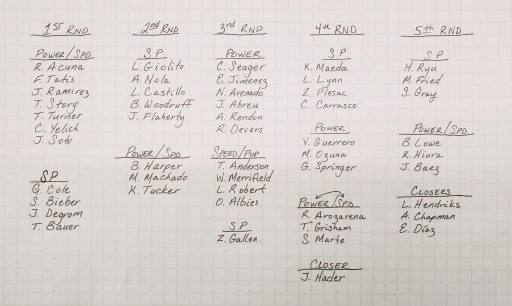 1ST RND
POWER/SPD
R. ACUNA
F. TATIS
J. RAMIREZ
T. STORY
T. TURNER
C. YELICH
J. SOTO
SP
G. COLE
S. BIEBER
J. DEGROM
T. BAUER
2nd RND
SP
L. GIOLITO
A. NOLA
L. CASTILLO
B. WOODRUFF
J. FLAHERTY
POWER/SPD
B. HARPER
M. MACHADO
K. TUCKER
3rd RND
POWER
C. SEAGER
E. JIMENEZ
N. ARENADO
J. ABREU
A. RENDON
R. DEVERS
SPEED/POP
T. ANDERSON
W. MERRIFIELD
L. ROBERT
O. ALBIES
SP
Z. GALLEN.
4th RND
SP
K. MAEDA
L. LYNN
Z. PLESAC
C. CARRASCO
POWER
V. GUERRERO
M. OZUNA
G. SPRINGER
POWER/SPD
R. AROZARENA
T. GRISHAM
S. MARTE
CLOSER
J. HADER
5th RND
SP
H. RYU
M. FRIED
S. GRAY
POWER/SPD
B. LOWE
K. HIURA
J. BAEZ
CLOSERS
L. HENDRIKS
A. CHAPMAN
E. DIAZ